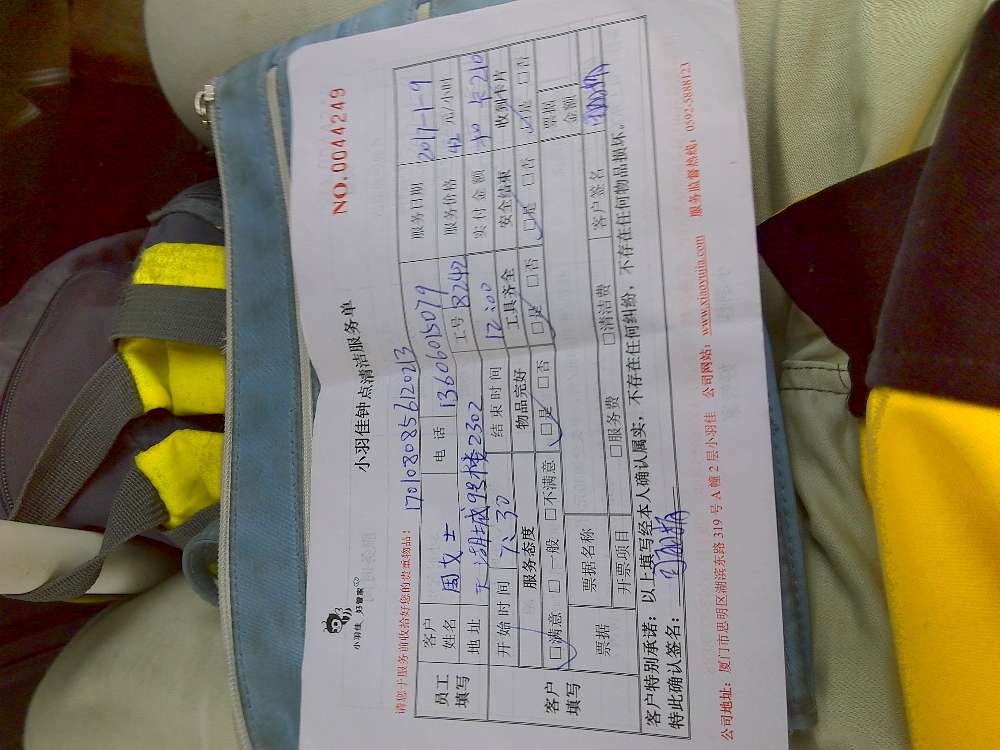 小羽佳 好管家
NO.0044249
小羽佳钟点清洁服务单
请您于服务前收拾好您的贵重物品: 1701080856120213
员工填写 客户姓名 周女士 电话 13606015079 服务日期 2017-1-9
地址 天湖城9号楼2302 工号 8242 服务价格 42 元/小时
开始时间 7:30 结束时间 12:00 实付金额 卡210
客户填写 服务态度 物品完好 工具齐全 安全结束 收到卡片
□满意 □一般 □不满意 □是 □否 □是 □否 □是 □否 □是 □否
票据 票据名称 票据金额
开票项目 □服务费 □清洁费 客户签名
客户特别承诺: 以上填写经本人确认属实, 不存在任何纠纷, 不存在任何物品损坏。
特此确认签名:
公司地址: 厦门市思明区湖滨东路 319 号 A 幢 2 层小羽佳 公司网站: www.xiaoyujia.com 服务监督热线: 0592-5888123